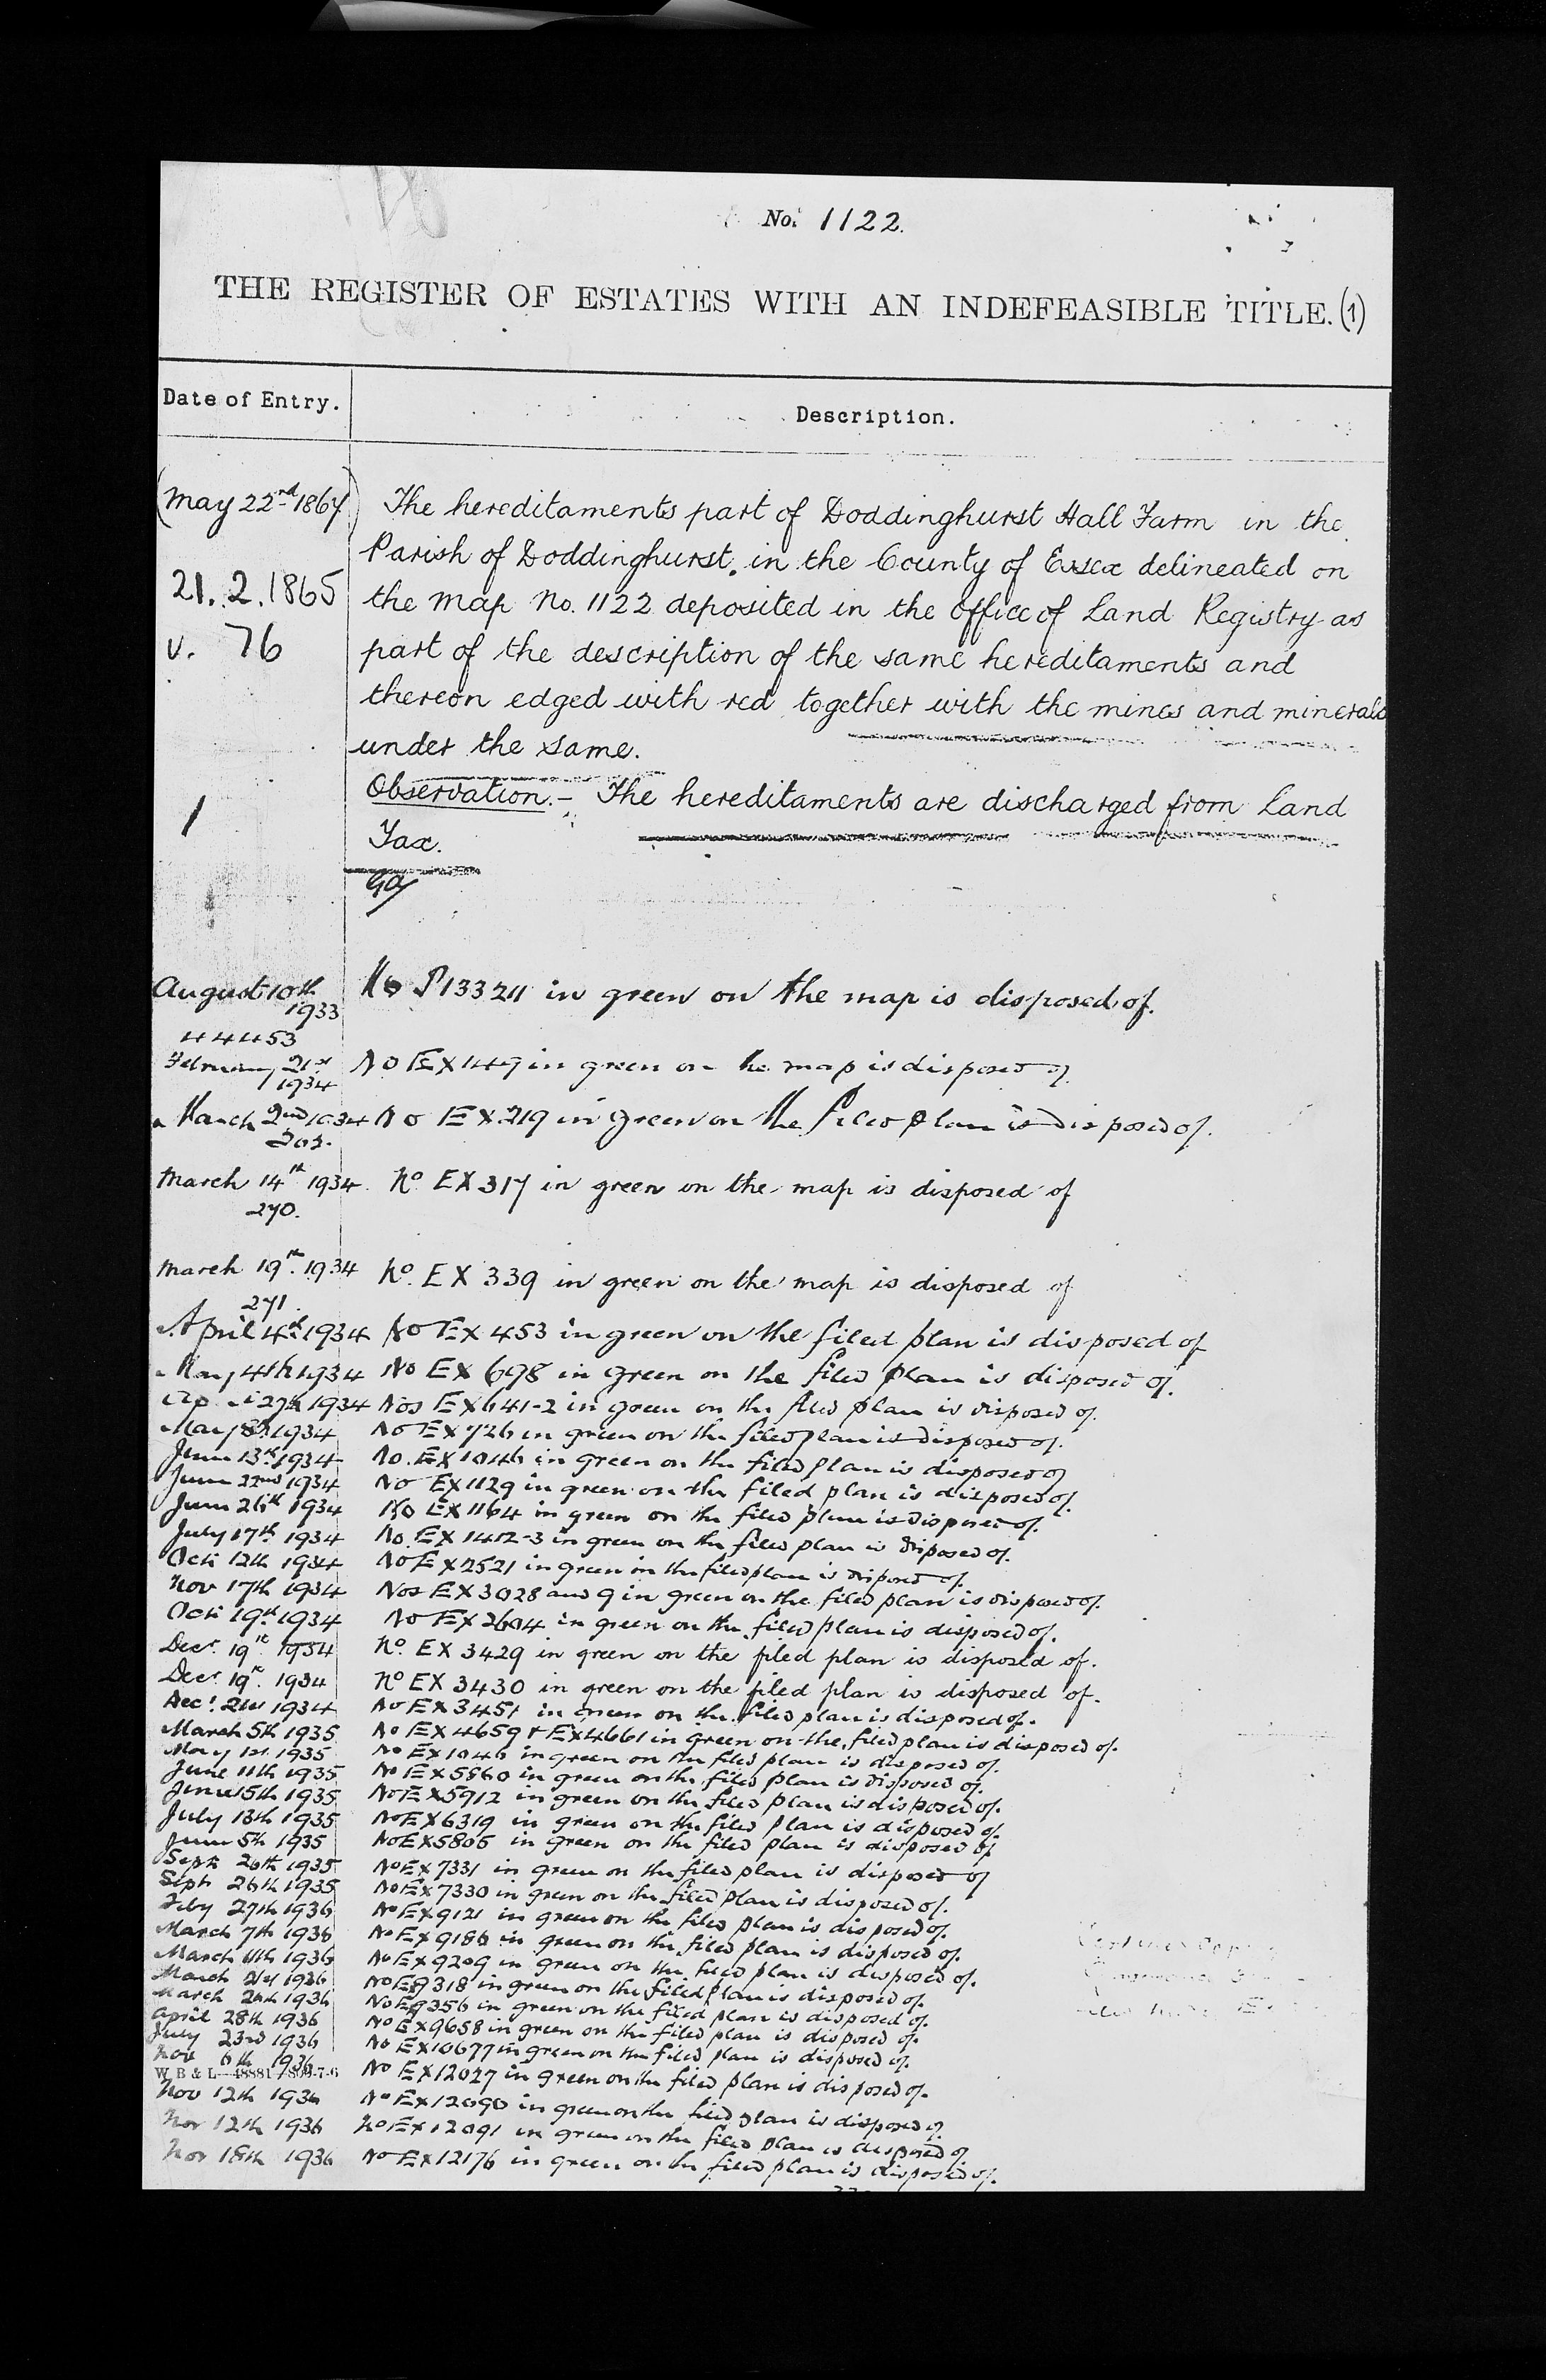 No. 1122.
THE REGISTER OF ESTATES WITH AN INDEFEASIBLE TITLE. (1)
Date of Entry. Description.
(May 22nd 1867) The hereditaments part of Doddinghurst Hall Farm in the
Parish of Doddinghurst. in the County of Essex delineated on
21. 2. 1865 the map No. 1122 deposited in the office of Land Registry as
v. 76 part of the description of the same hereditaments and
thereon edged with red together with the mines and minerals
under the same.
Observation.- The hereditaments are discharged from Land
1 Tax.
August 10th 1933 No P133211 in green on the map is disposed of.
44453
February 21st 1934 No EX 147 in green on the map is disposed of
March 2nd 1934 No EX 219 in green on the filed plan is disposed of.
202.
March 14th 1934 No EX 317 in green on the map is disposed of
270.
March 19th. 1934 No. EX 339 in green on the map is disposed of
271.
April 4th 1934 No EX 453 in green on the filed plan is disposed of
May 4th 1934 No EX 698 in green on the filed plan is disposed of.
April 27th 1934 Nos EX 641-2 in green on the filed plan is disposed of.
May 8th 1934 No EX 726 in green on the filed plan is disposed of.
June 13th 1934 No. EX 1046 in green on the filed plan is disposed of
June 22nd 1934 No EX 1129 in green on the filed plan is disposed of.
June 26th 1934 No EX 1164 in green on the filed plan is disposed of.
July 17th 1934 No. EX 1412-3 in green on the filed plan is disposed of.
Oct: 12th 1934 No EX 2521 in green on the filed plan is disposed of.
Nov 17th 1934 Nos EX 3028 and 9 in green on the filed plan is disposed of.
Oct: 19th 1934 No EX 2604 in green on the filed plan is disposed of.
Decr. 19th 1934 No. EX 3429 in green on the filed plan is disposed of.
Decr 19th. 1934 No EX 3430 in green on the filed plan is disposed of.
Decr. 21st 1934 No EX 3451 in green on the filed plan is disposed of.
March 5th 1935 No EX 4659 + EX 4661 in green on the filed plan is disposed of.
May 1st 1935 No EX 1046 in green on the filed plan is disposed of.
June 11th 1935 No EX 5860 in green on the filed plan is disposed of.
June 15th 1935 No EX 5912 in green on the filed plan is disposed of.
July 13th 1935 No EX 6319 in green on the filed plan is disposed of.
June 5th 1935 No EX 5805 in green on the filed plan is disposed of
Sept 26th 1935 No EX 7331 in green on the filed plan is disposed of
Sept 26th 1935 No EX 7330 in green on the filed plan is disposed of.
Feby 27th 1936 No EX 9121 in green on the filed plan is disposed of.
March 7th 1936 No EX 9186 in green on the filed plan is disposed of.
March 11th 1936 No EX 9209 in green on the filed plan is disposed of.
March 21st 1936 No EX 9318 in green on the filed plan is disposed of.
March 26th 1936 No EX 9356 in green on the filed plan is disposed of.
April 28th 1936 No EX 9658 in green on the filed plan is disposed of.
July 23rd 1936 No EX 10677 in green on the filed plan is disposed of.
Nov 6th 1936 No EX 12027 in green on the filed plan is disposed of.
W B & L
Nov 12th 1936 No EX 12090 in green on the filed plan is disposed of
Nov 12th 1936 No EX 12091 in green on the filed plan is disposed of
Nov 18th 1936 No EX 12176 in green on the filed plan is disposed of.